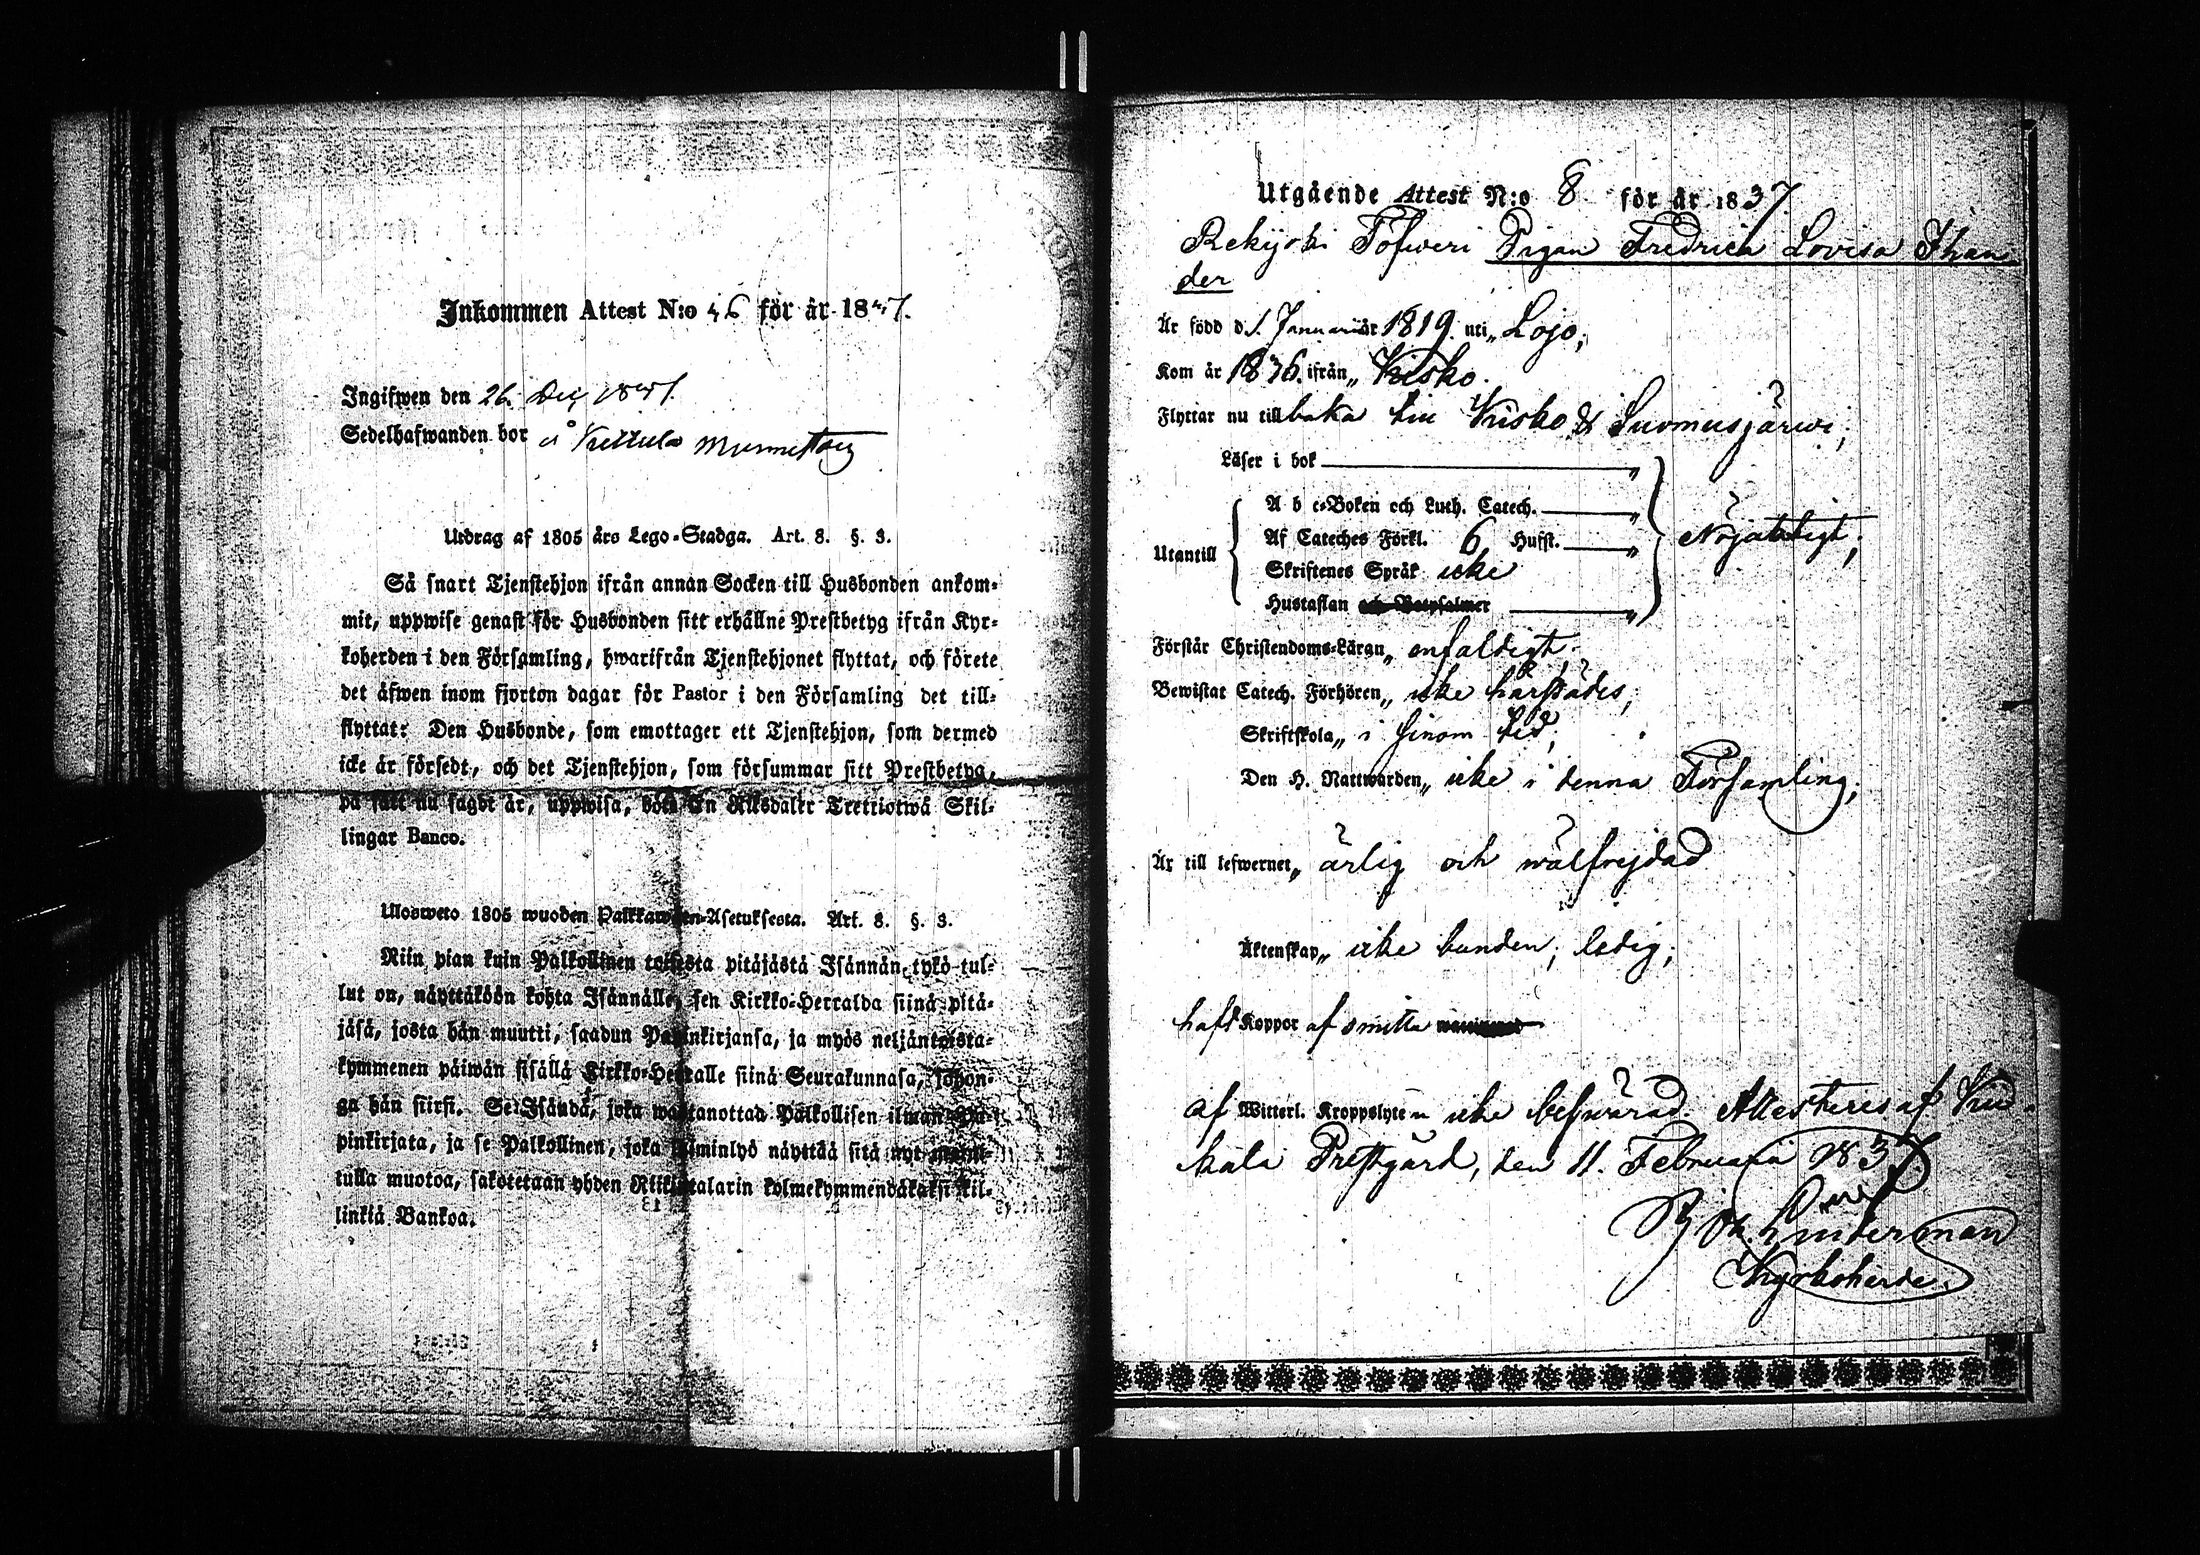 Inkommen Attest N:o 46 för år 1847.
Ingifwen den 26. Dec, 1847.
Sedelhafwanden bor å Kettula
Utdrag af 1805 års Lego-Stadga. Art. 8. §. 3.
Så snart Tjenstehjon ifrån annan Socken till Husbonden ankom-
mit, uppwise genast för Husbonden sitt erhållne Prestbetyg ifrån Kyr-
koherden i den Församling, hwarifrån Tjenstehjonet flyttat, och förete
det äfwen inom fjorton dagar för Pastor i den Församling det till-
flyttat: Den Husbonde, som emottager ett Tjenstehjon, som dermed
icke är försedt, och det Tjenstehjon, som försummar sitt Prestbetyg,
på sätt nu sagdt är, uppwisa, böte En Riksdaler Trettiotwå Skil-
lingar Banco.
Ulosweto 1805 wuoden Palkkawäen-Asetuksesta. Art. 8. §. 3.
Niin pian kuin Palkollinen toisesta pitäjästä Isännän tykö tul-
lut on, näyttäköön kohta Isännälle, sen Kirkko-Herralda siinä pitä-
jäsä, josta hän muutti, saadun Papinkirjansa, ja myös neljäntoista-
kymmenen päiwän sisällä Kirkko-Herralle siinä Seurakunnasa, johon-
ga hän siirsi. Se Isändä, joka wastanottaa Palkollisen ilman Pa-
pinkirjata, ja se Palkollinen, joka laiminlyö näyttää sitä nyt mainit-
tulla muotoa, sakotetaan yhden Riikintalarin kolmekymmendäkaksi kil-
linkiä Bankoa.
Utgående Attest N:o 8 för år 1837.
Rekijoki Tofweri Pigan Fredrica Lovisa Than
der
Är född d. 1. Januarii år 1819. uti „ Lojo;
Kom år 1836. ifrån „ Kisko.
Flyttar nu tillbaka till Kisko & Suomusjärwi;
Läser i bok „
A b c-Boken och Luth. Catech. „
Utantill Af Cateches Förkl. 6 Hufst. „ Nöjaktigt;
Skriftenes Språk icke
Hustaflan och Botpsalmer „
Förstår Christendoms-Läran „ enfaldigt.
Bewistat Catech. Förhören „ icke härstädes;
Skriftskola „ i sinom tid;
Den H. Nattwarden „ icke i denna Församling;
Är till lefwernet „ ärlig och wälfrejdad
Äktenskap „ icke bunden; ledig;
haft Koppor af smitta
af Witterl. Kroppslyte „ icke beswärad. Attesteres af Kiu
kala Prestgård, den 11. Februarii 1837
Joh. Linderman
Kyrkoherde.